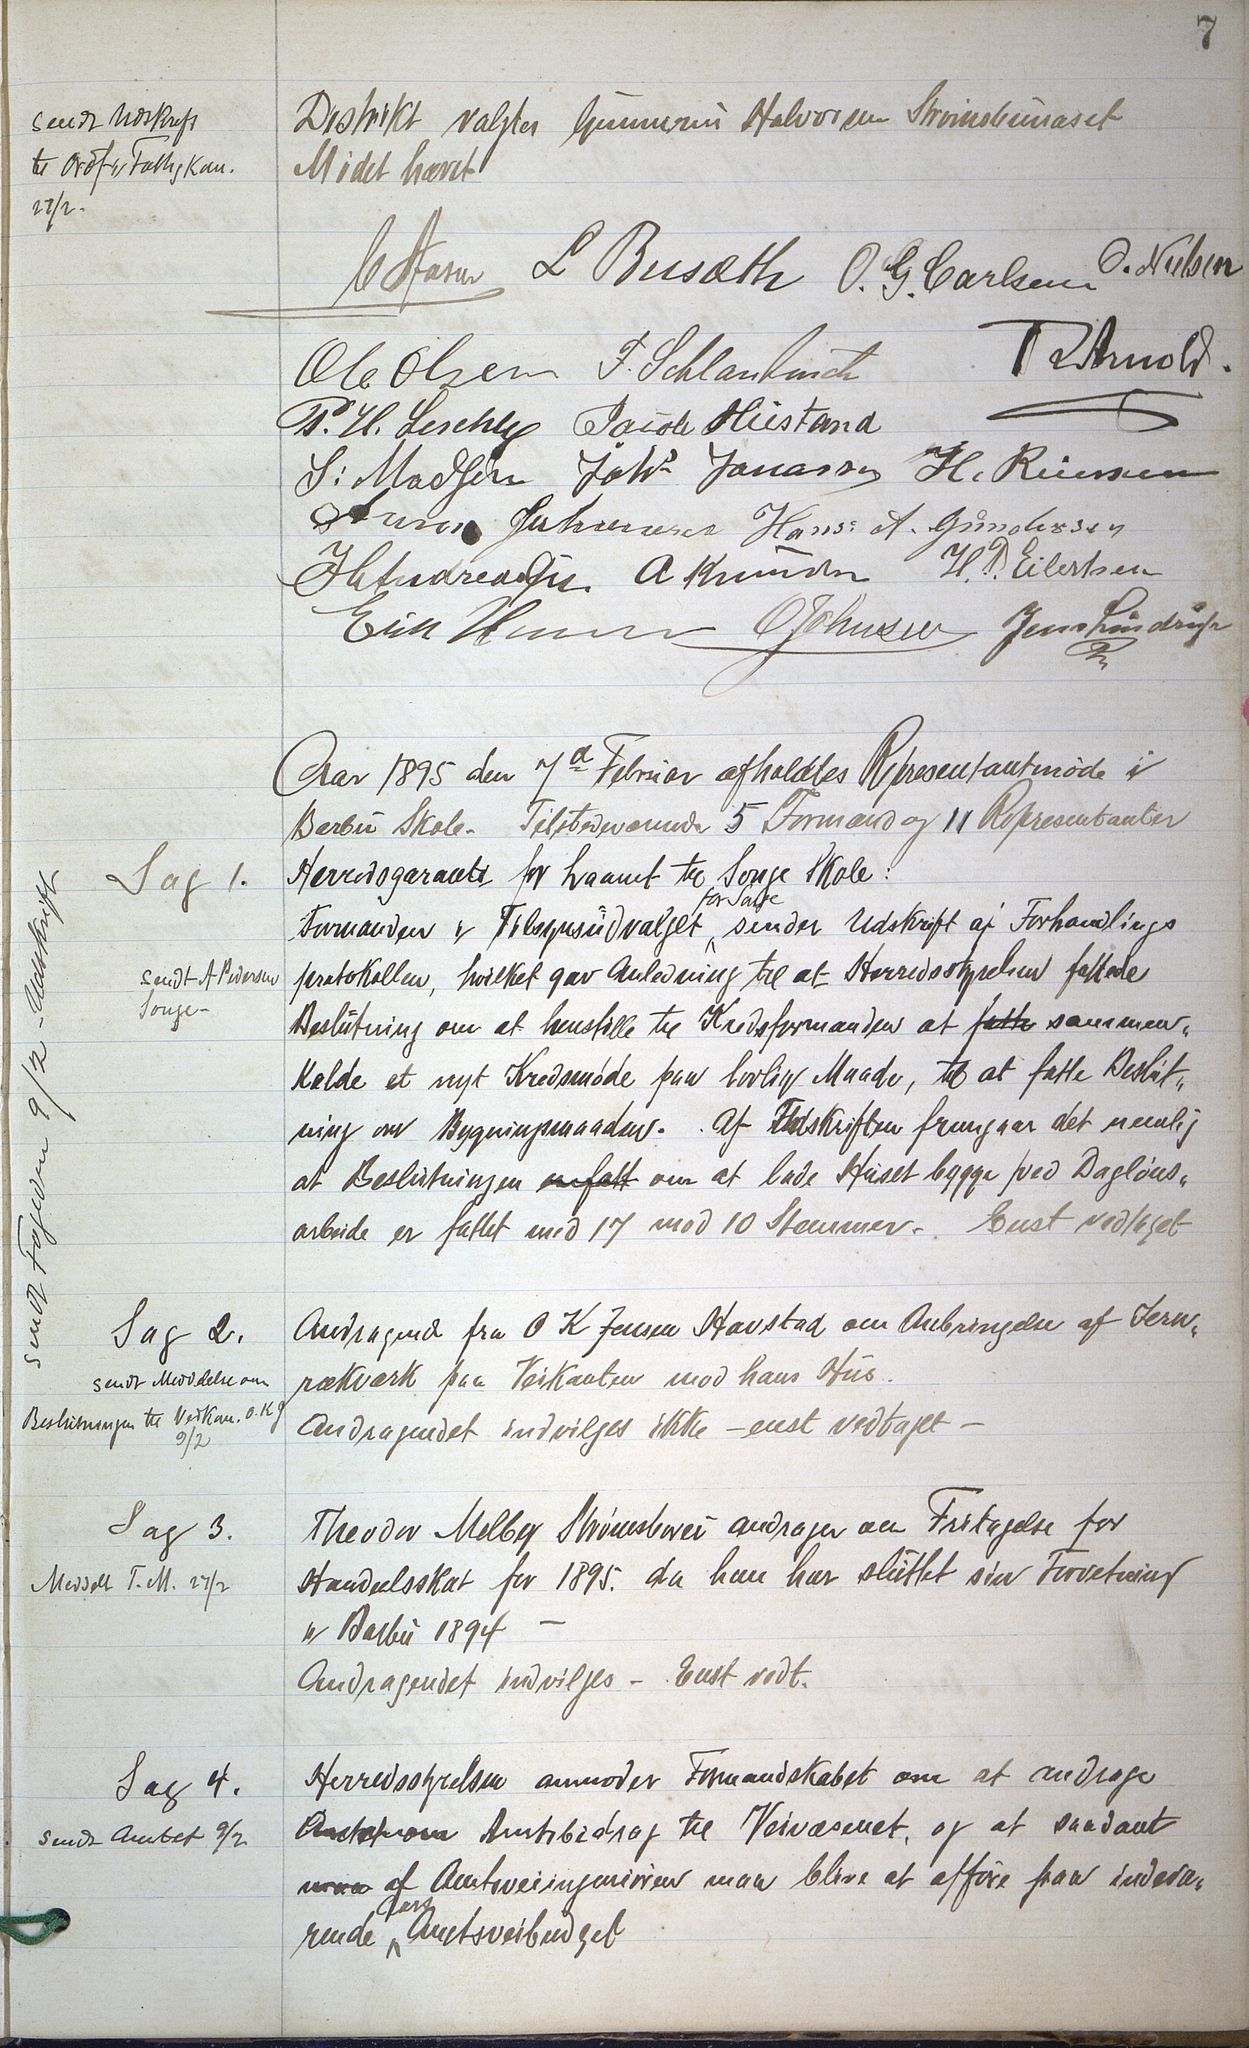 7
sendt Udskrift
til Ordf. i Fattigkom.
27/2.
Distrikt valgtes Gunnerius Halvorsen Strømsbuaaset
Mødet hævet
L Busæth O. G. Carlsen O. Nielsen
Ole Olsen F. Schlanbusch Arnold.
P. H. Seschly Jacob Hustand
S: Madsen Joh⁠s Jonassen H. Reiersen
Hans: A. Gundersen
A Knudsen H. P. Eilertsen
OJohnsen Jens Lindrup
Aar 1895 den 7d Februar afholdtes Representantmøde i
Barbu Skole. Tilstedeværende 5 Formænd og 11 Representanter
Sag 1.
Herredsgaranti for Laanet til Songe Skole:
Formanden i Tilsynsudvalget for Samme sender Udskrift af Forhandlings
sendt A Pedersen
Songe-
protokollen, hvilket gav Anledning til at Herredsstyrelsen fattede
Beslutning om at henstille til Kredsformanden at fatte sammen„
kalde et nyt Kredsmøde paa lovlig Maade, til at fatte Beslut„
ning om Bygningsmaaden. Af Udskriften fremgaar det nemlig
at Beslutningen om at lade Huset bygge ved Dagløns„
arbeide er fattet med 17 mod 10 Stemmer. Enst vedtaget
sendt Fogden 9/2 - Udskrift
Sag 2.
Andragende fra O K Jensen Havstad om Anbringelse af Jern„
sendt Meddelelse om
Beslutningen til Veikom. O. K J
9/2
rækværk paa Veikanten mod hans Hus.
Andragendet indvilges ikke - enst vedtaget -
Sag 3.
Theodor Melby Strømsbuei andrager om Fritagelse for
Meddelt T. M. 27/2
Handelsskat for 1895. da han har sluttet sin Forretning
i Barbu 1894 -
Andragendet indvilges - Enst vedt.
Sag 4.
Herredsstyrelsen anmoder Formandskabet om at andrage
sendt Amtet 9/2
Amtet om Amtsbidrag til Veivæsenet, og at saadant
maa af Amtsveiingeniøren maa blive at opføre paa indevæ„
rende Aars Amtsveibudget